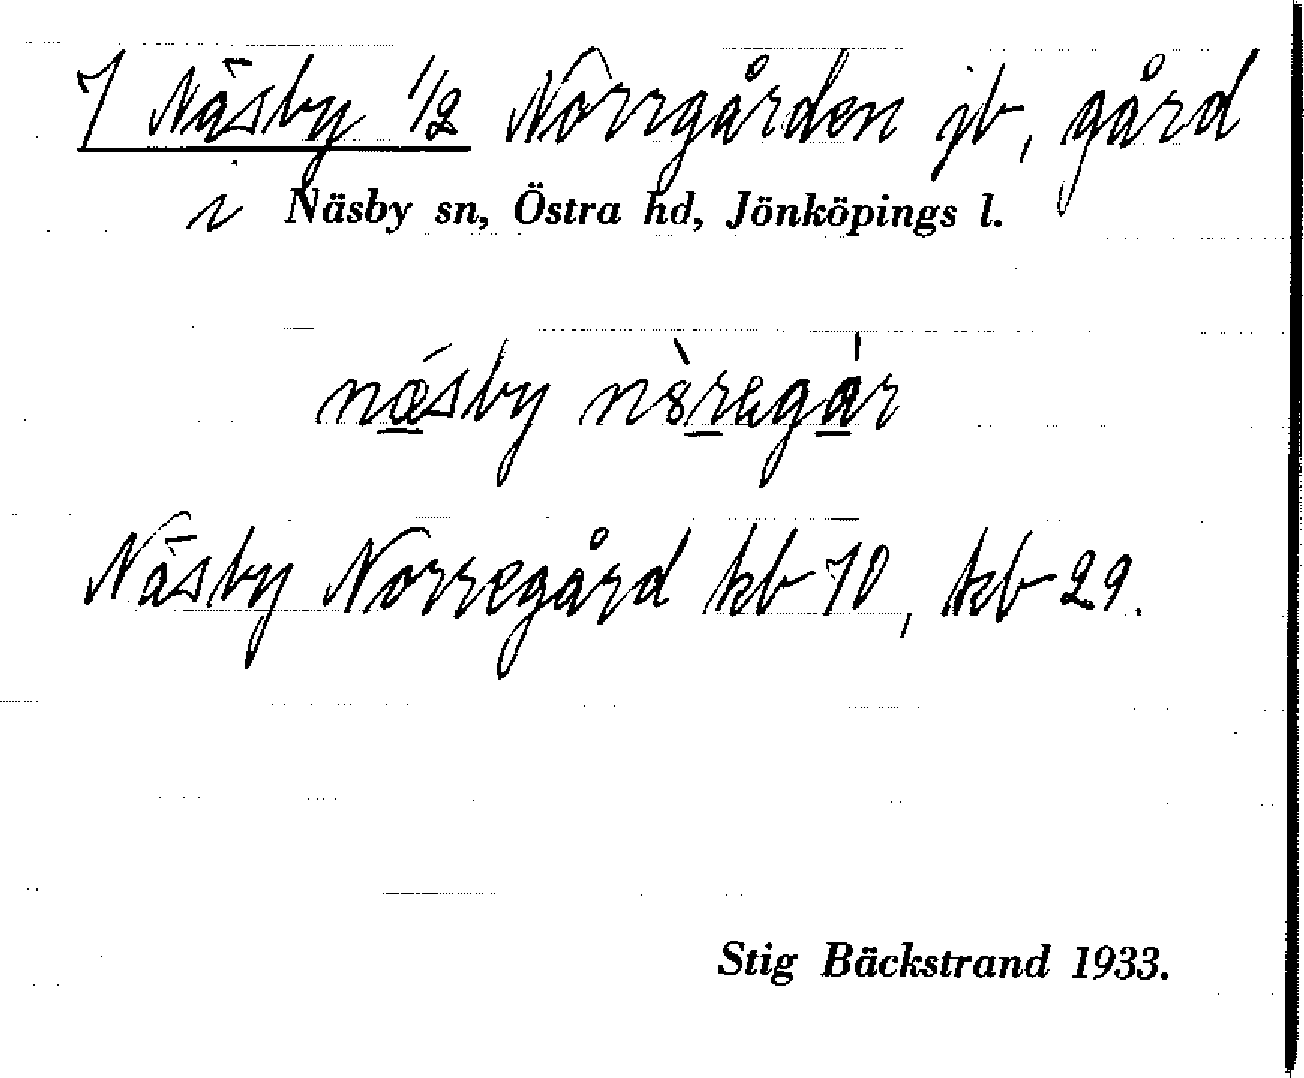 7 Näsby 1/2 Norrgården jb, gård
i Näsby sn, Östra hd, Jönköpings l.
nǽ̲sby
Näsby Norregård kb 70, tkb 29.
Stig Bäckstrand 1933.